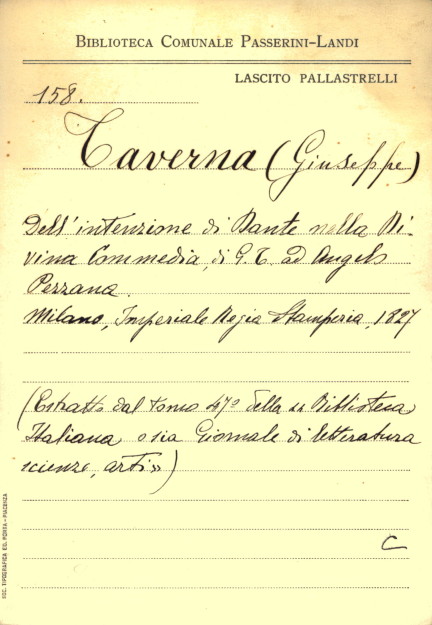 BIBLIOTECA COMUNALE PASSERINI-LANDI
LASCITO PALLASTRELLI
158.
Taverna (Giuseppe)
Dell'intenzione di Dante nella Di-
vina Commedia, di G. T. ad Angelo
Pezzana.
Milano, Imperiale Regia Stamperia, 1827
(Estratto dal tomo 47º della «Biblioteca
Italiana o sia Giornale di letteratura
scienze, arti»)
C
SOC. TIPOGRAFICA ED. PORTA - PIACENZA